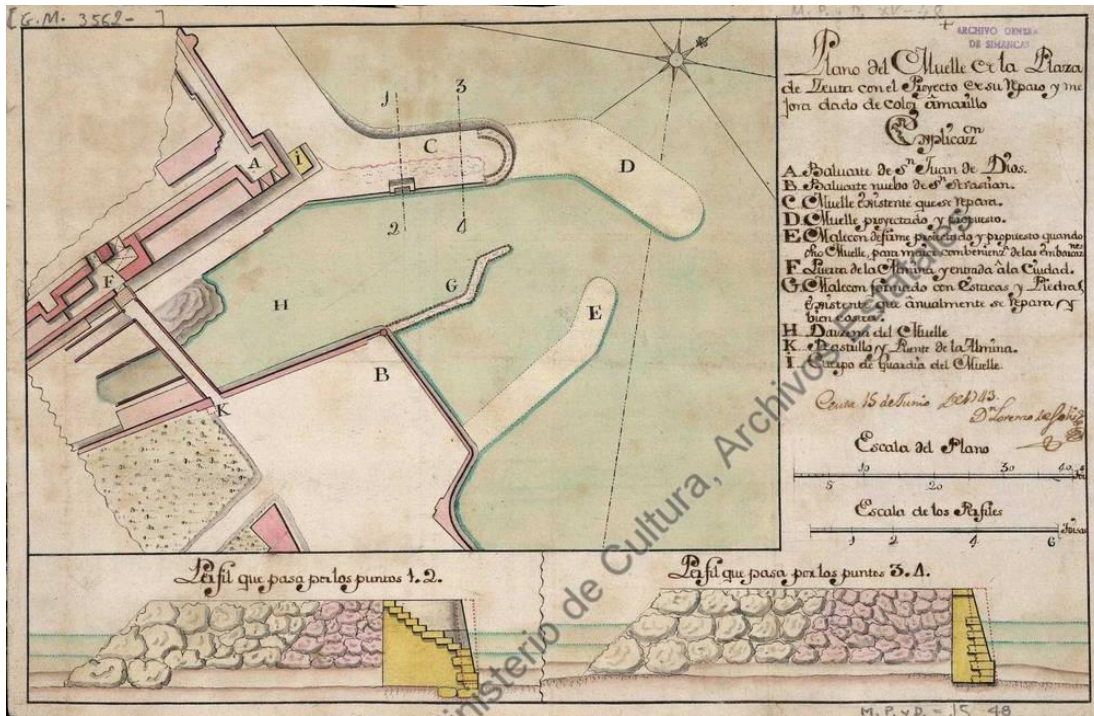 [G.M. 3562- ]
M. P. y D. XV-48
ARCHIVO GENERAL
DE SIMANCAS
Plano del Muelle de la Plaza
de Zeuta con el Proyecto de su reparo y me
jora dado de color amarillo
Explicacion
A. Baluarte de Sn Juan de Dios.
B. Baluarte nuebo de Sn Sevastian.
C. Muelle existente que se repara.
D. Muelle proyectado y propuesto.
E. Malecon de firme proiectado y propuesto quando
dho Muelle, para maior combenienz.a de las embarazi.nes
F. Puerta de la Almina y entrada à la Ciudad.
G. Malecon formado con Estacas y Piedras
existente que ânualmente se repara y
bien costra.
H. Darzena del Muelle
K. Rastrillo y Puente de la Almina.
i. Cuerpo de Guardia del Muelle
Ceuta 15 de Junio de 1743.
Dn Lorenzo de Solis
Escala del Plano
10 30 40
5 20
Escala de los Perfiles
Toisas
1 2 4 6
A
i
1
3
C
D
2
4
F
H
G
E
B
K
Perfil que pasa por los puntos 1. 2.
Perfil que pasa por los puntos 3. 4.
Ministerio de Cultura, Archivos Estatales
M. P. y D. - 15 - 48